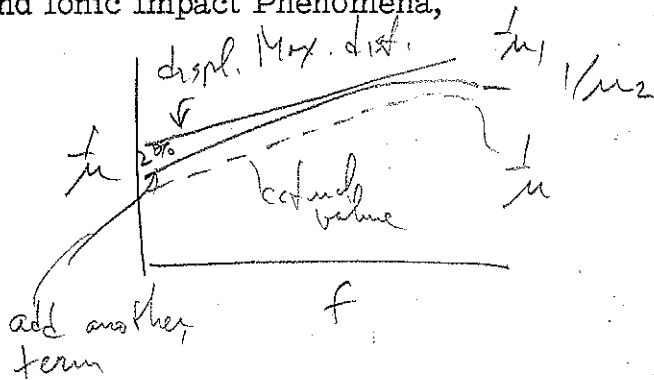 nd Ionic Impact Phenomena,
displ. Max. dist.
1/μ1
1/μ2
2%
1/μ
actual
value
1/μ
add another
term
f